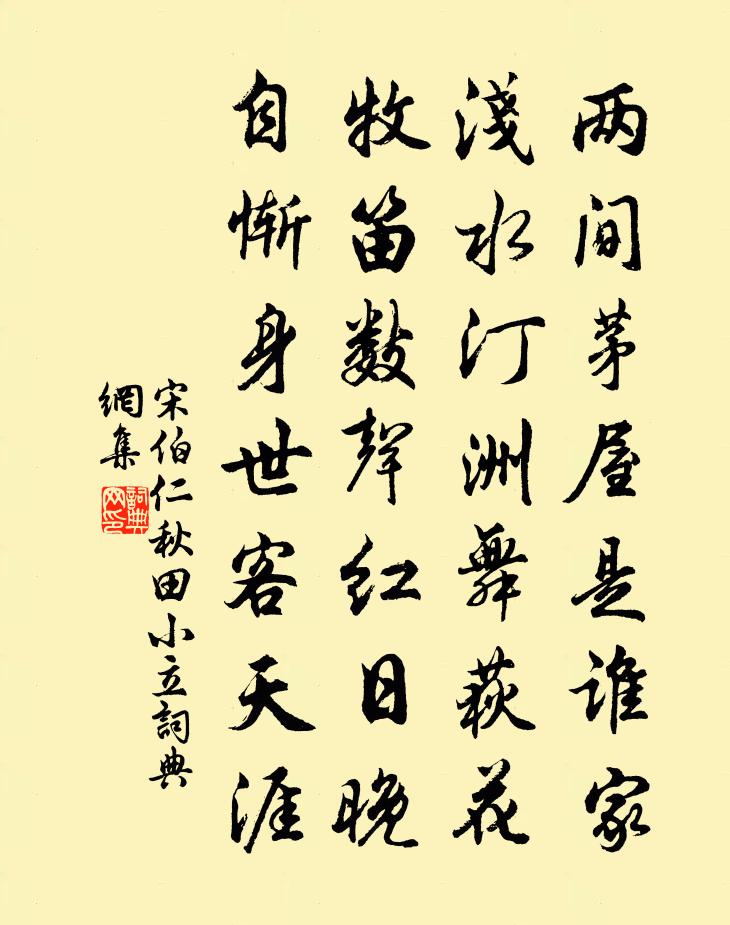 两间茅屋是谁家
淺水汀洲舞荻花
牧笛数聲红日晚
自惭身世客天涯
宋伯仁秋田小立詞典
網集
詞典
网印